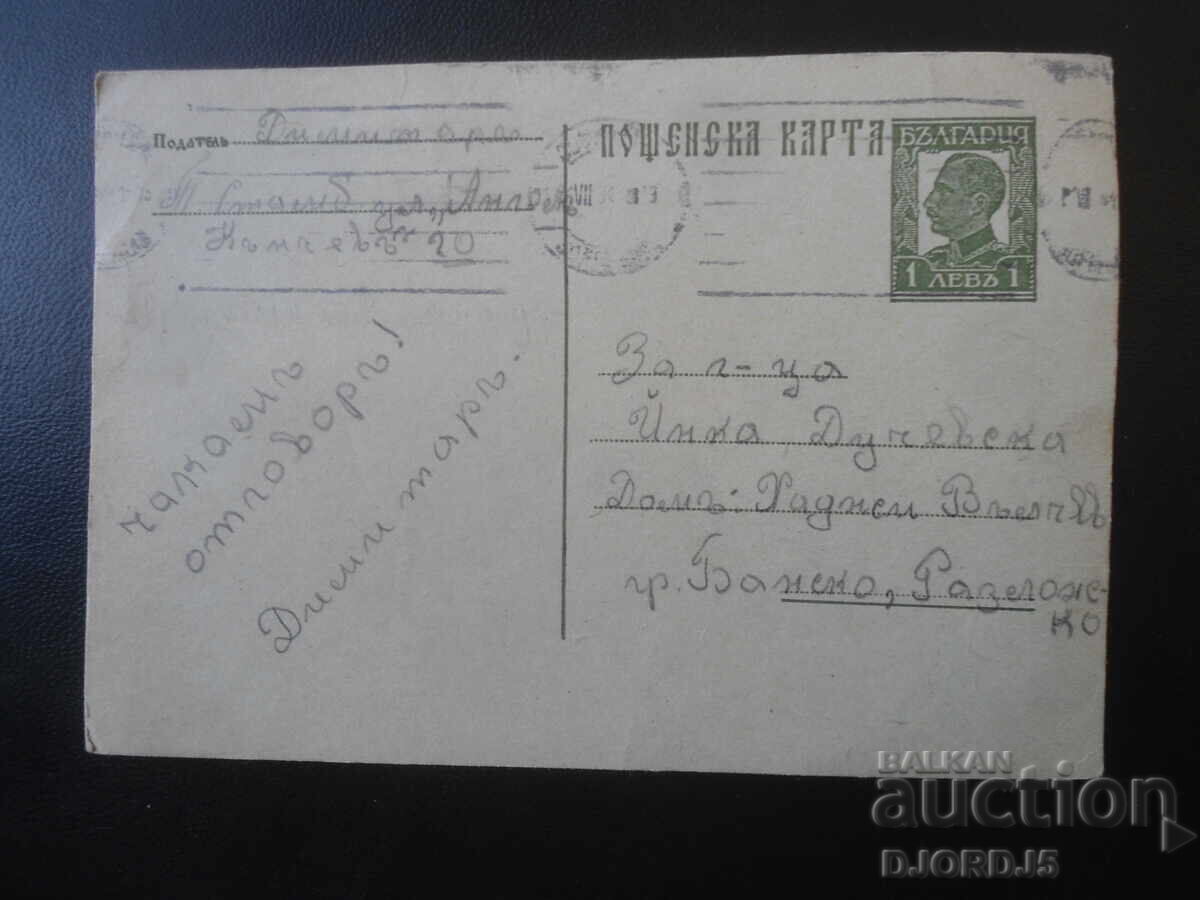 Податель Димитаръ
ул. „Ангелъ
Кънчевъ" 20
ПОЩЕНСКА КАРТА
БЪЛГАРИЯ
1 ЛЕВЪ 1
VII
За г-ца
Йнка Дучевска
Домъ: Хаджи Вълчевъ
гр. Банско, Разложко
чакаемъ
отговоръ!
Димитаръ.
BALKAN
auction
DJORDJ5